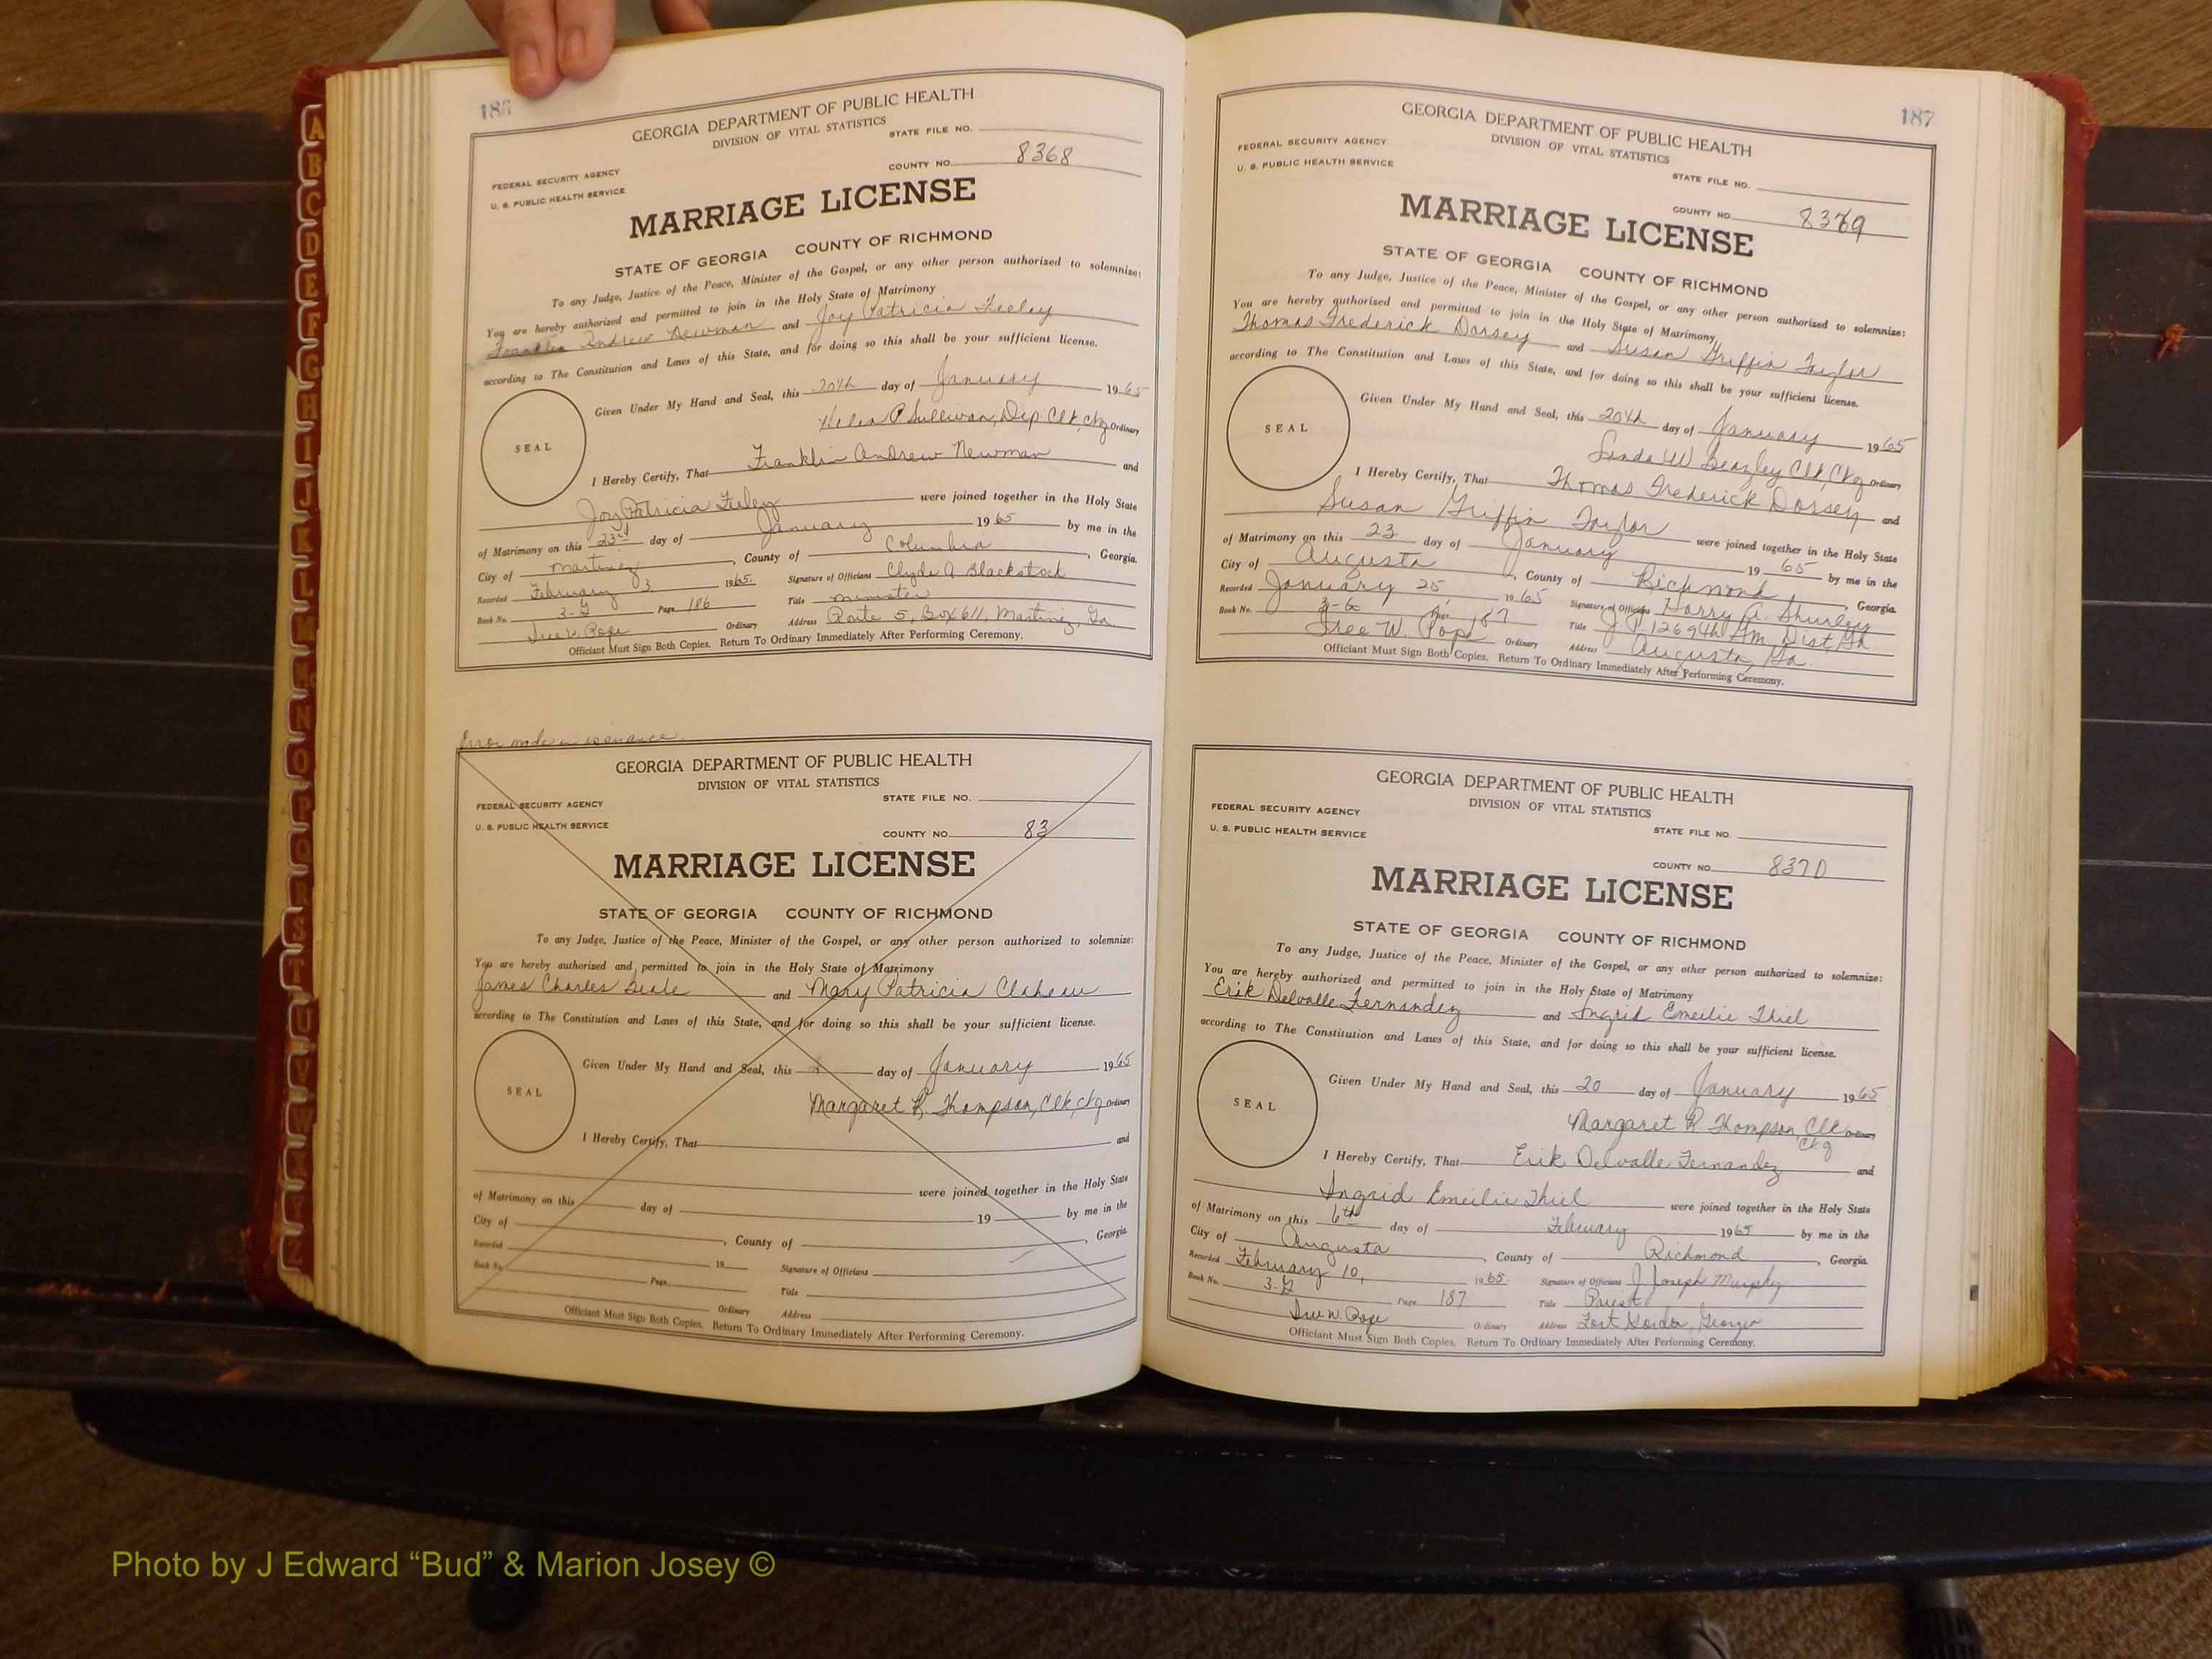 186
GEORGIA DEPARTMENT OF PUBLIC HEALTH
DIVISION OF VITAL STATISTICS
STATE FILE NO.
FEDERAL SECURITY AGENCY
U. S. PUBLIC HEALTH SERVICE
COUNTY NO. 8368
MARRIAGE LICENSE
STATE OF GEORGIA COUNTY OF RICHMOND
To any Judge, Justice of the Peace, Minister of the Gospel, or any other person authorized to solemnize:
You are hereby authorized and permitted to join in the Holy State of Matrimony
Franklin Andrew Newman and Joy Patricia Feeley
according to The Constitution and Laws of this State, and for doing so this shall be your sufficient license.
Given Under My Hand and Seal, this 20th day of January 1965
SEAL
Helen P Sullivan, Dep. Clk, Ctg Ordinary
I Hereby Certify, That Franklin Andrew Newman and
Joy Patricia Feeley were joined together in the Holy State
of Matrimony on this 23rd day of January 1965 by me in the
City of Martinez, County of Columbia, Georgia.
Recorded February 3 1965. Signature of Officiant Clyde A Blackstock
Book No. 3-G Page 186 Title minister
Iree W. Pope Ordinary Address Route 5, Box 611, Martinez, Ga.
Officiant Must Sign Both Copies. Return To Ordinary Immediately After Performing Ceremony.
Error made in issuance.
GEORGIA DEPARTMENT OF PUBLIC HEALTH
DIVISION OF VITAL STATISTICS
STATE FILE NO.
FEDERAL SECURITY AGENCY
U. S. PUBLIC HEALTH SERVICE
COUNTY NO. 83
MARRIAGE LICENSE
STATE OF GEORGIA COUNTY OF RICHMOND
To any Judge, Justice of the Peace, Minister of the Gospel, or any other person authorized to solemnize:
You are hereby authorized and permitted to join in the Holy State of Matrimony
James Charles Beale and Mary Patricia
according to The Constitution and Laws of this State, and for doing so this shall be your sufficient license.
Given Under My Hand and Seal, this day of January 1965
SEAL
Margaret R Thompson, Clk, Ctg Ordinary
I Hereby Certify, That and
were joined together in the Holy State
of Matrimony on this day of 19 by me in the
City of , County of , Georgia
Recorded 19 Signature of Officiant
Book No. Page Title
Ordinary Address
Officiant Must Sign Both Copies. Return To Ordinary Immediately After Performing Ceremony.
187
GEORGIA DEPARTMENT OF PUBLIC HEALTH
DIVISION OF VITAL STATISTICS
FEDERAL SECURITY AGENCY
U. S. PUBLIC HEALTH SERVICE
STATE FILE NO.
COUNTY NO. 8369
MARRIAGE LICENSE
STATE OF GEORGIA COUNTY OF RICHMOND
To any Judge, Justice of the Peace, Minister of the Gospel, or any other person authorized to solemnize:
You are hereby authorized and permitted to join in the Holy State of Matrimony
Thomas Frederick Dorsey and Susan Griffin Taylor
according to The Constitution and Laws of this State, and for doing so this shall be your sufficient license.
Given Under My Hand and Seal, this 20th day of January 1965
SEAL
Linda W. Beazley Clk, Ctg Ordinary
I Hereby Certify, That Thomas Frederick Dorsey and
Susan Griffin Taylor were joined together in the Holy State
of Matrimony on this 23 day of January 1965 by me in the
City of Augusta, County of Richmond, Georgia
Recorded January 25, 1965 Signature of Officiant Harry A. Shurley
Book No. 3-G Page 187 Title J P 1269th Gm. Dist Ga
Iree W. Pope Ordinary Address Augusta, Ga.
Officiant Must Sign Both Copies. Return To Ordinary Immediately After Performing Ceremony.
GEORGIA DEPARTMENT OF PUBLIC HEALTH
DIVISION OF VITAL STATISTICS
FEDERAL SECURITY AGENCY
U. S. PUBLIC HEALTH SERVICE
STATE FILE NO.
COUNTY NO. 8370
MARRIAGE LICENSE
STATE OF GEORGIA COUNTY OF RICHMOND
To any Judge, Justice of the Peace, Minister of the Gospel, or any other person authorized to solemnize:
You are hereby authorized and permitted to join in the Holy State of Matrimony
Erik Delvalle Fernandez and Ingrid Emeilie Thiel
according to The Constitution and Laws of this State, and for doing so this shall be your sufficient license.
Given Under My Hand and Seal, this 20 day of January 1965
SEAL
Margaret R Thompson, Clk Ctg Ordinary
I Hereby Certify, That Erik Delvalle Fernandez and
Ingrid Emeilie Thiel were joined together in the Holy State
of Matrimony on this 6th day of February 1965 by me in the
City of Augusta, County of Richmond, Georgia
Recorded February 10, 1965. Signature of Officiant J. Joseph Murphy
Book No. 3-G Page 187 Title Priest
Iree W. Pope Ordinary Address Fort Gordon, Georgia
Officiant Must Sign Both Copies. Return To Ordinary Immediately After Performing Ceremony.
A
B
C
D
E
F
G
H
I
J
K
L
M
Mc
N
O
P
Q
R
S
T
U
V
W
X
Y
Z
Photo by J Edward “Bud” & Marion Josey ©